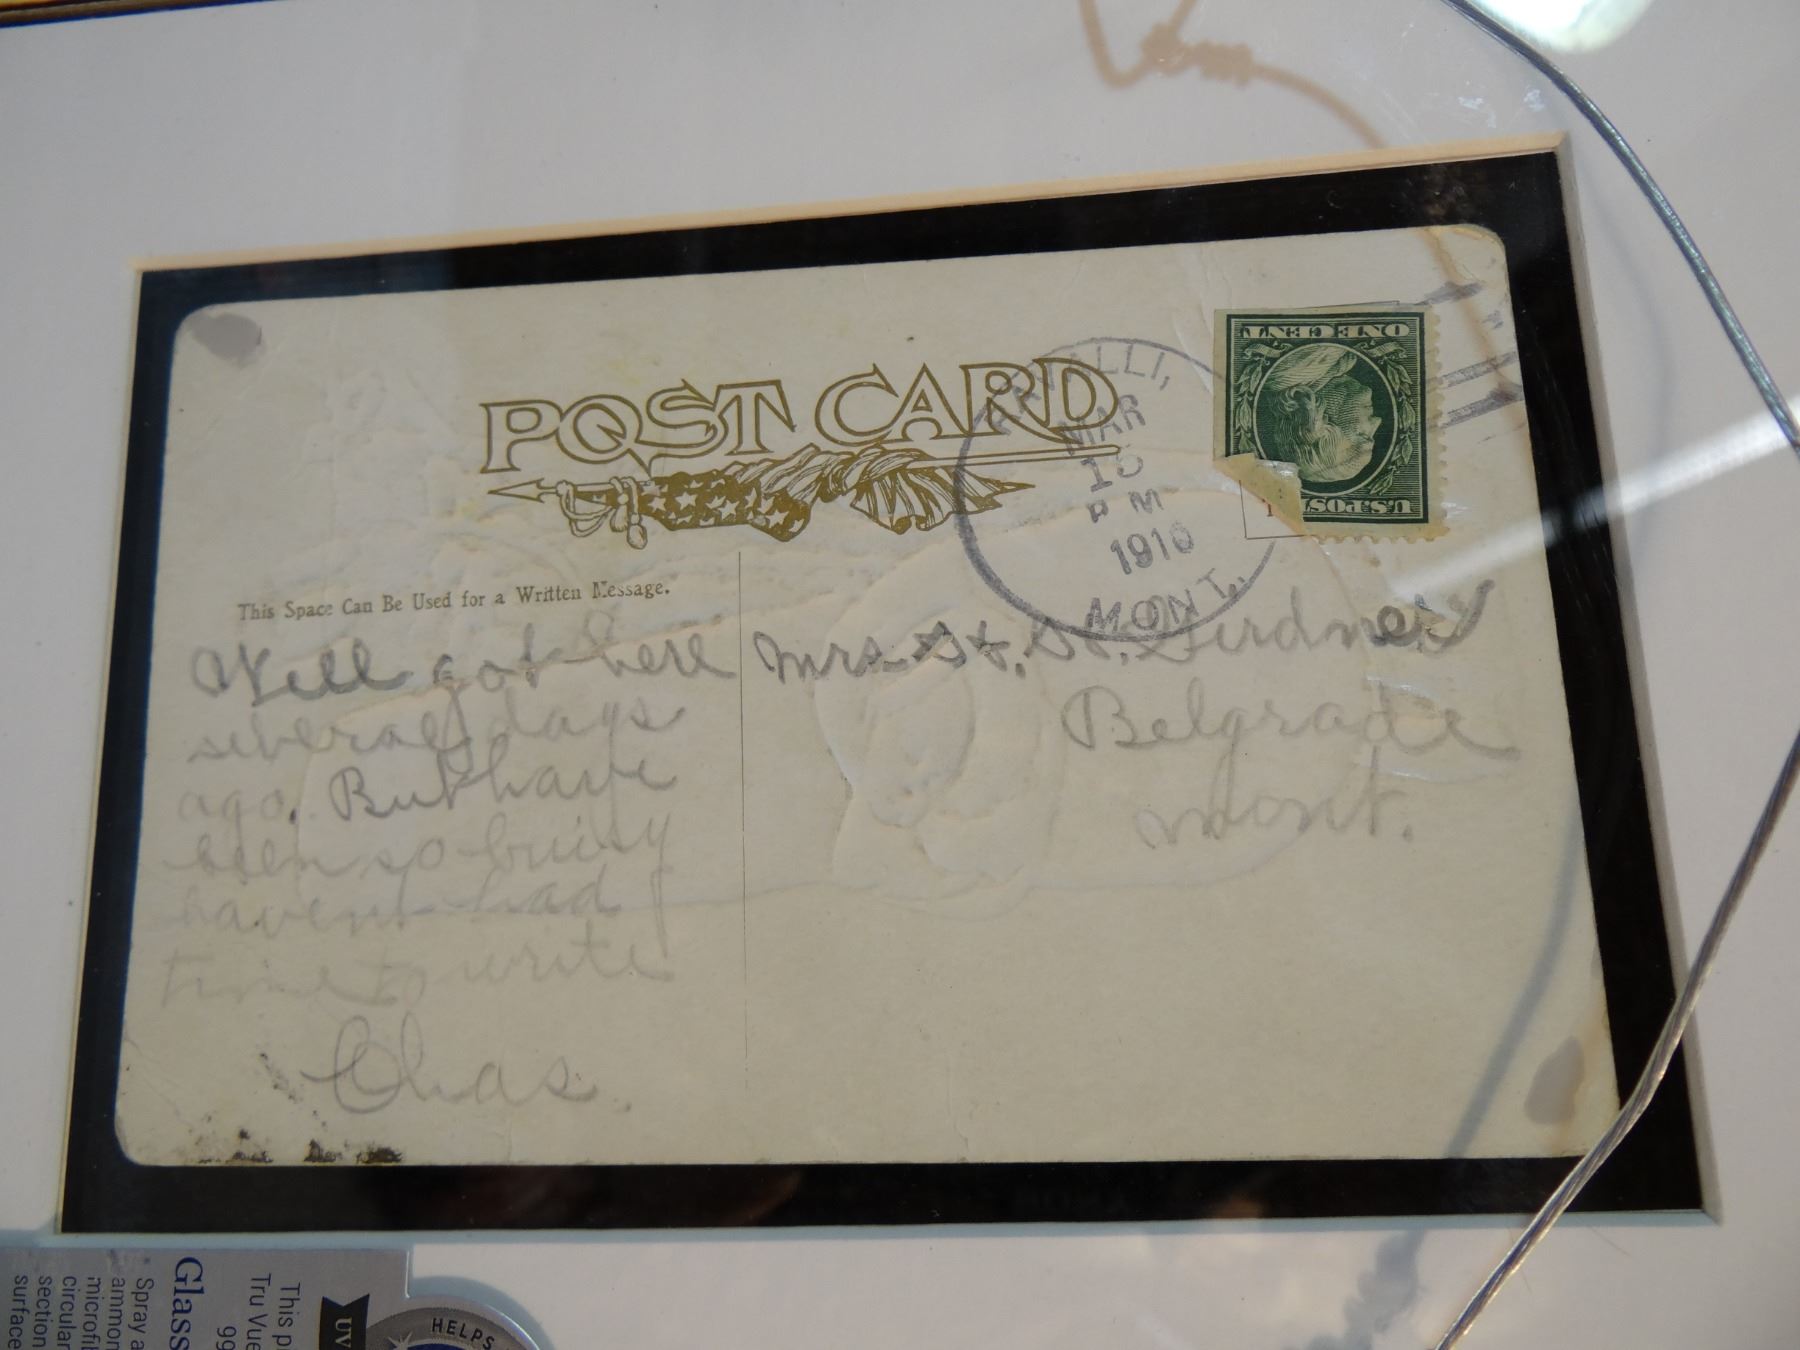 POST CARD
RAVALLI,
MAR
15
PM
1910
MONT.
ONE CENT
U.S. POS
This Space Can Be Used for a Written Message.
Well got here
several days
ago. But have
been so buisy
havent had
time to write
Chas.
Mrs.
Belgrade
Mont.
This p
Tru Vue
99
Glass
Spray a
ammon
microfi
circular
section
surface
UV
HELPS